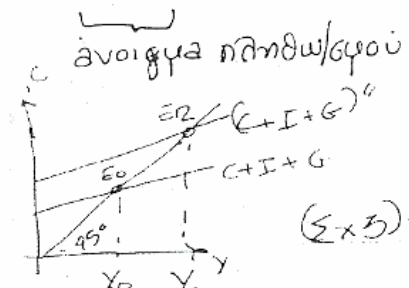 άνοιγμα πληθω/σμού
C
(C+I+G)"
E2
E0
C+I+G
(Σχ5)
45°
Y0 Y